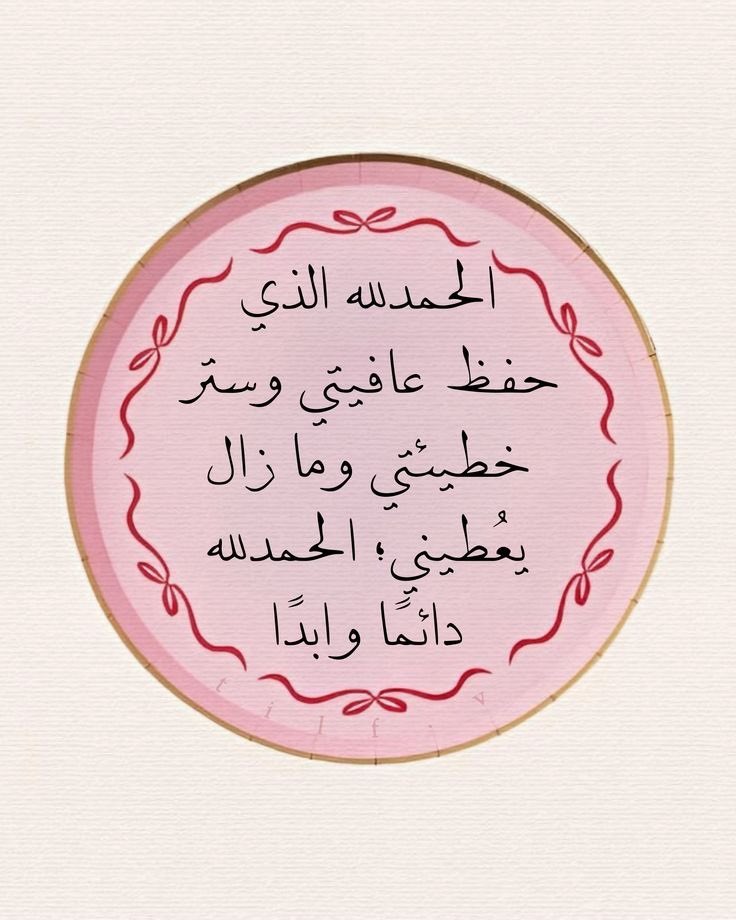 الحمدلله الذي
حفظ عافيتي وستر
خطيئتي وما زال
يعُطيني؛ الحمدلله
دائمًا وابدًا
t i l f i v